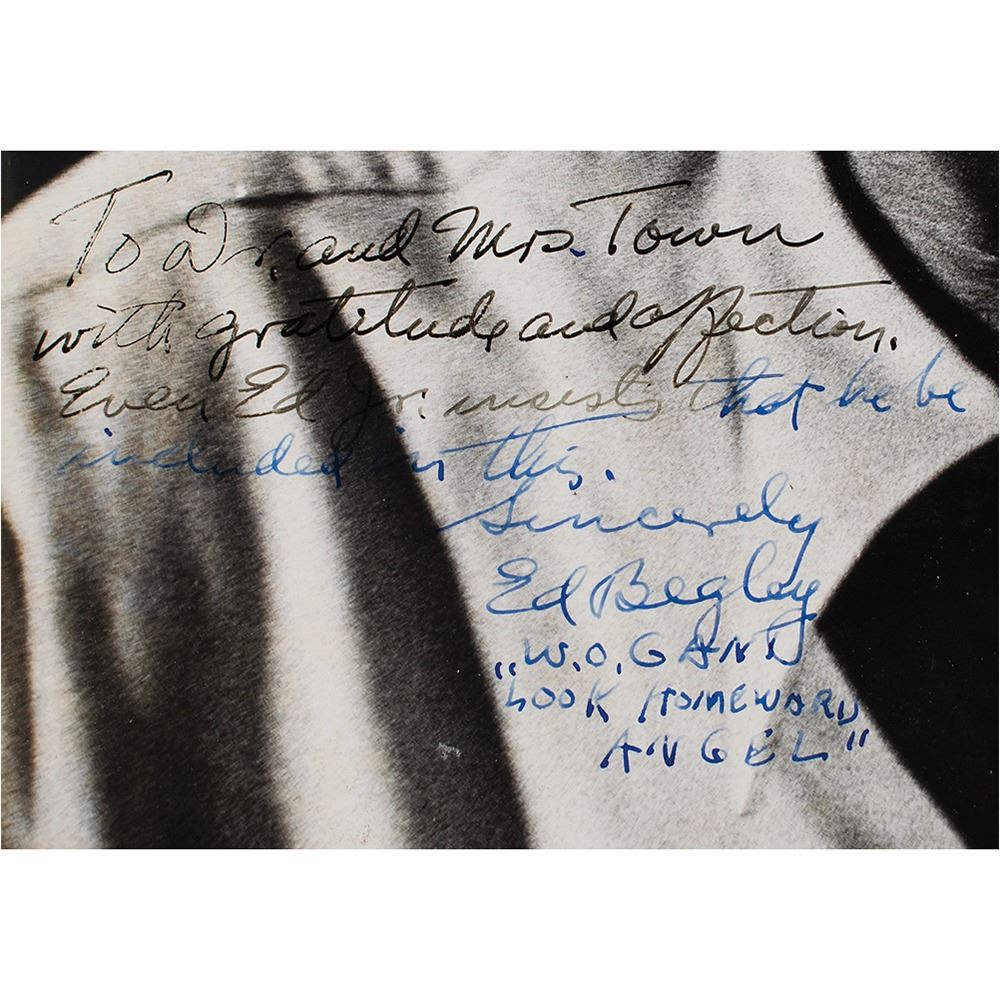 To Dr. and Mrs. Town
with gratitude and affection.
Even Ed Jr. insists that he be
included in this.
Sincerely
Ed Begley
"W.O. GANT
LOOK HOMEWARD
ANGEL"